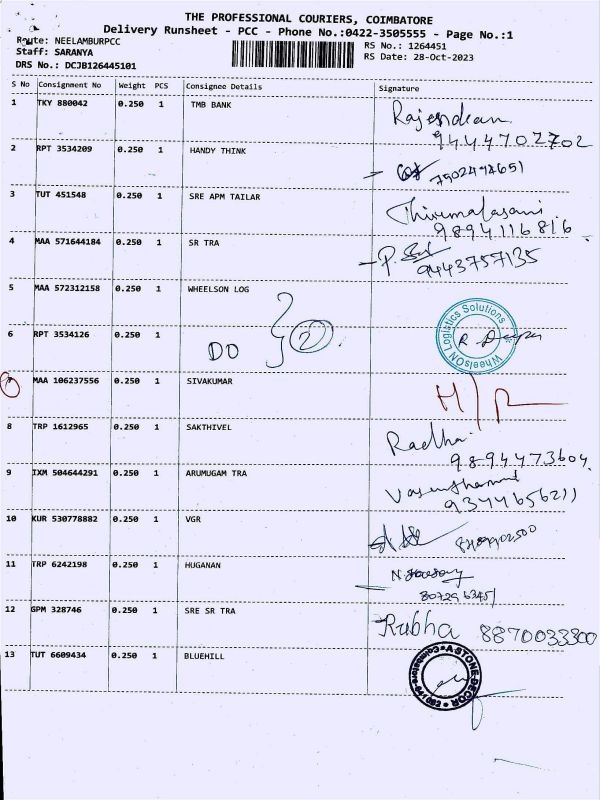 THE PROFESSIONAL COURIERS, COIMBATORE
Delivery Runsheet - PCC - Phone No.:0422-3505555 - Page No.:1
Route: NEELAMBURPCC RS No.: 1264451
Staff: SARANYA RS Date: 28-Oct-2023
DRS No.: DCJB126445101
S No Consignment No Weight PCS Consignee Details Signature
1 TKY 880042 0.250 1 TMB BANK Rajendran
9444702702
2 RPT 3534209 0.250 1 HANDY THINK
3 TUT 451548 0.250 1 SRE APM TAILAR
9894116816
4 MAA 571644184 0.250 1 SR TRA
9443757135
5 MAA 572312158 0.250 1 WHEELSON LOG
WheelsON Logistics Solutions
6 RPT 3534126 0.250 1 DO 2
7 MAA 106237556 0.250 1 SIVAKUMAR H/R
8 TRP 1612965 0.250 1 SAKTHIVEL Radha
9894473604
9 IXM 504644291 0.250 1 ARUMUGAM TRA
9344656211
10 KUR 530778882 0.250 1 VGR
11 TRP 6242198 0.250 1 HUGANAN
12 GPM 328746 0.250 1 SRE SR TRA Rubha 8870033300
13 TUT 6609434 0.250 1 BLUEHILL
A STONE DECOR